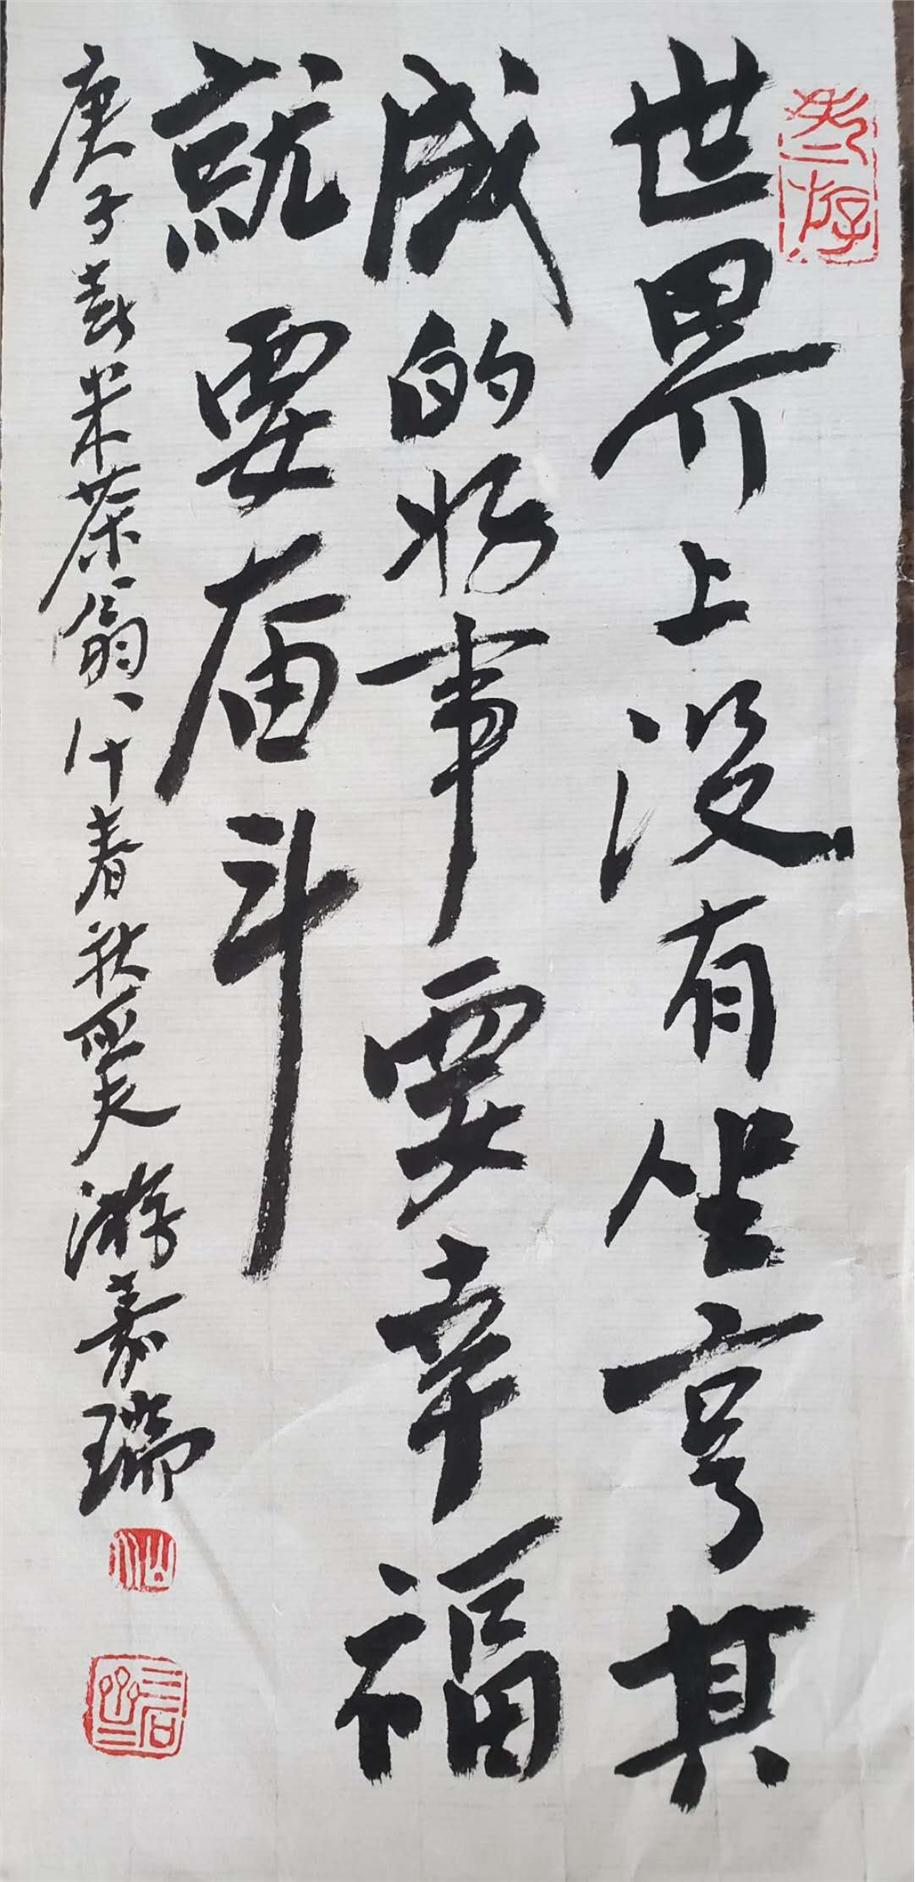 世界上没有坐享其
成的好事要幸福
就要奋斗
庚子喜米茶翁八十春秋夫游嘉瑞